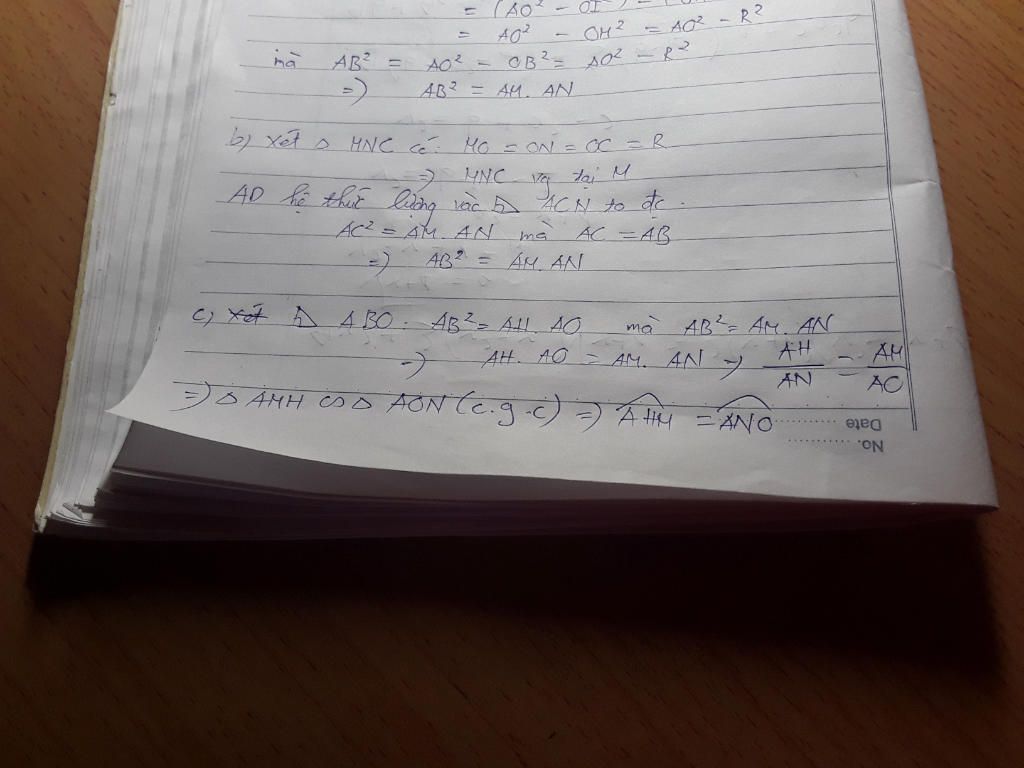 = (AO² - OI²) -
= AO² - OM² = AO² - R²
mà AB² = AO² - OB² = AO² - R²
=) AB² = AM. AN
b) xét Δ MNC có: MO = ON = OC = R
=) MNC vg tại M
AD hệ thức lượng vào ACN ta đc.
AC² = AM. AN mà AC = AB
=) AB² = AM. AN
c) xét ABO. AB² = AH. AO mà AB² = AM. AN
=) AH. AO = AM. AN =) AH/AN = AM/AO
=) Δ AMH ∽ Δ AON (c.g.c) =) AHM = ANO
Date
No.